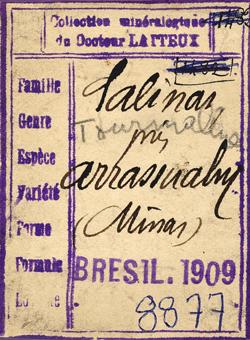 Collection minéralogique
du Docteur LAITEUX
Famille
Genre
Espèce
Variété
Forme
Formule
Salinas
près
Arrassuahy
(Minas)
BRESIL. 1909
8877